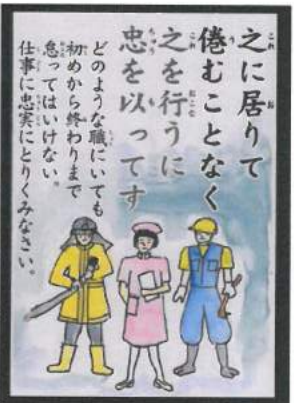 之に居りて
倦むことなく
之を行うに
忠を以ってす
どのような職にいても
初めから終わりまで
怠ってはいけない。
仕事に忠実にとりくみなさい。